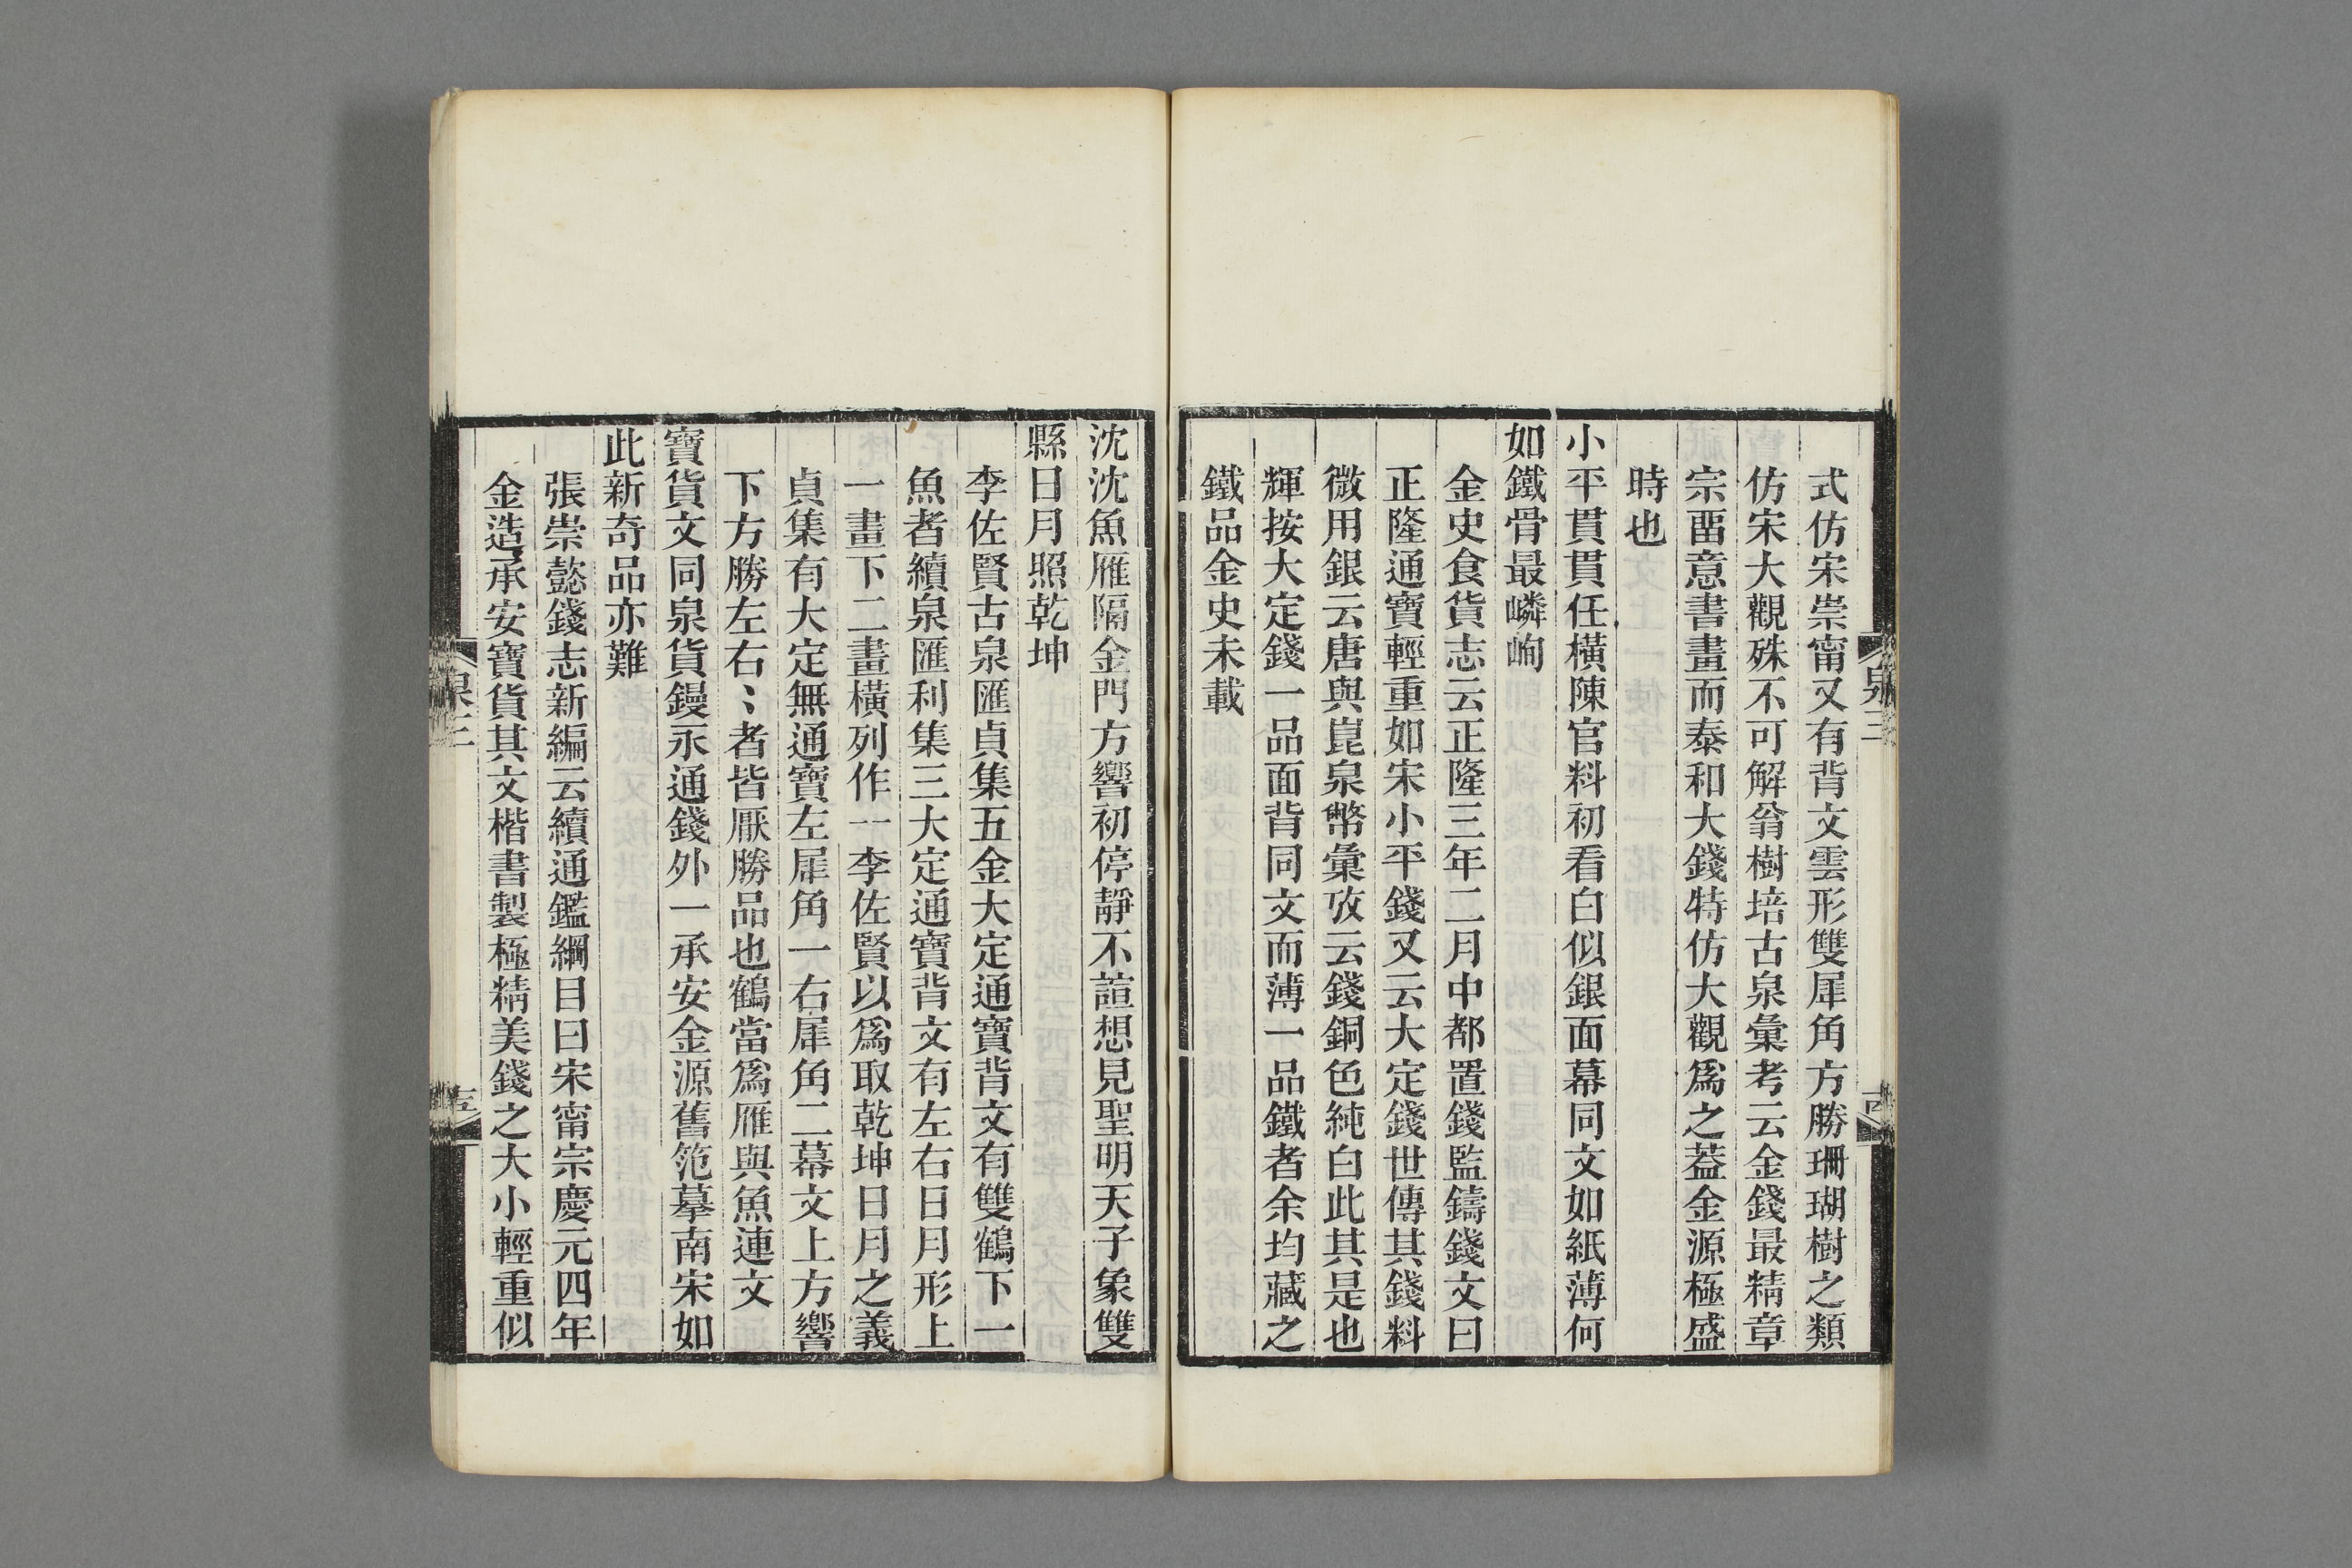 式仿宋崇甯又有背文雲形雙犀角方勝珊瑚樹之類
仿宋大觀殊不可解翁樹培古泉彙考云金錢最精章
宗畱意書畫而泰和大錢特仿大觀爲之葢金源極盛
時也
小平貫貫任橫陳官料初看白似銀面幕同文如紙薄何
如鐵骨最嶙峋
金史食貨志云正隆三年二月中都置錢監鑄錢文曰
正隆通寶輕重如宋小平錢又云大定錢世傳其錢料
微用銀云唐與崑泉幣彙攷云錢銅色純白此其是也
輝按大定錢一品面背同文而薄一品鐵者余均藏之
鐵品金史未載
沈沈魚雁隔金門方響初停靜不諠想見聖明天子象雙
縣日月照乾坤
李佐賢古泉匯貞集五金大定通寶背文有雙鶴下一
魚者續泉匯利集三大定通寶背文有左右日月形上
一畫下二畫橫列作亠李佐賢以爲取乾坤日月之義
貞集有大定無通寶左犀角一右犀角二幕文上方響
下方勝左右〻者皆厭勝品也鶴當爲雁與魚連文
寶貨文同泉貨鏝永通錢外一承安金源舊笵摹南宋如
此新奇品亦難
張崇懿錢志新編云續通鑑綱目曰宋甯宗慶元四年
金造承安寶貨其文楷書製極精美錢之大小輕重似
泉三